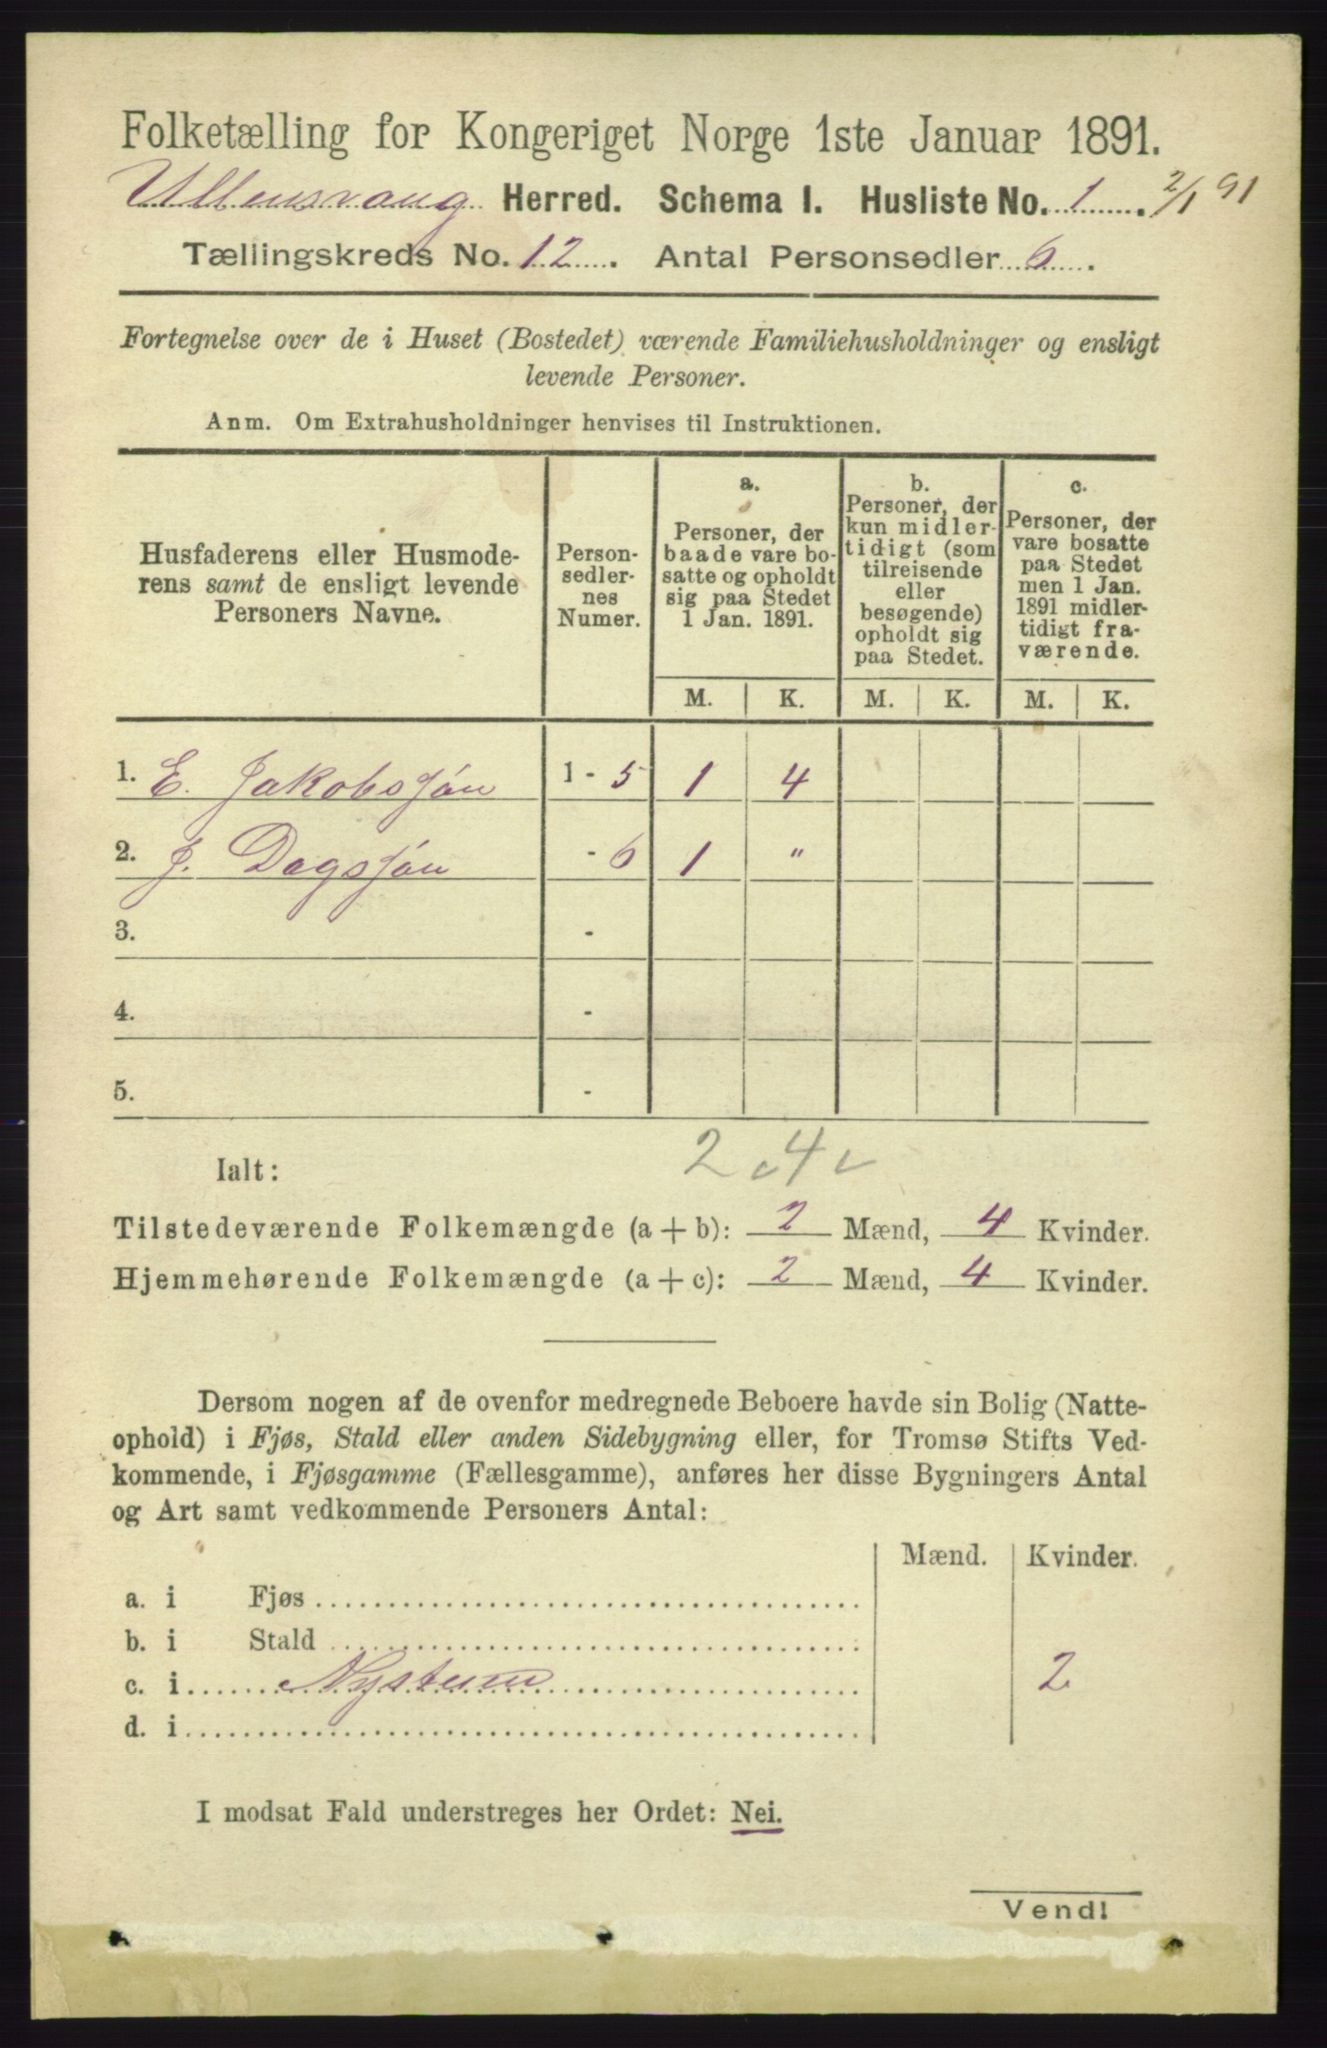 Folketælling for Kongeriget Norge 1ste Januar 1891.
Ullensvang Herred. Schema I. Husliste No. 1. 2/1 91
Tællingskreds No. 12. Antal Personsedler 6.
Fortegnelse over de i Huset (Bostedet) værende Familiehusholdninger og ensligt
levende Personer.
Anm. Om Extrahusholdninger henvises til Instruktionen.
Husfaderens eller Husmode-
rens samt de ensligt levende
Personers Navne.
Person-
sedler-
nes
Numer.
a.
Personer, der
baade vare bo-
satte og opholdt
sig paa Stedet
1 Jan. 1891.
b.
Personer, der
kun midler-
tidigt (som
tilreisende
eller
besøgende)
opholdt sig
paa Stedet.
c.
Personer, der
vare bosatte
paa Stedet
men 1 Jan.
1891 midler-
tidigt fra-
værende.
M. K. M. K. M. K.
1. E. Jakobsjón 1 - 5 1 4
2. J. Dagsjón - 6 1 "
3. -
4. -
5. -
Ialt: 2 4
Tilstedeværende Folkemængde (a + b): 2 Mænd, 4 Kvinder.
Hjemmehørende Folkemængde (a + c): 2 Mænd, 4 Kvinder.
Dersom nogen af de ovenfor medregnede Beboere havde sin Bolig (Natte-
ophold) i Fjøs, Stald eller anden Sidebygning eller, for Tromsø Stifts Ved-
kommende, i Fjøsgamme (Fællesgamme), anføres her disse Bygningers Antal
og Art samt vedkommende Personers Antal:
Mænd. Kvinder.
a. i Fjøs
b. i Stald
c. i Nystuen 2
d. i
I modsat Fald understreges her Ordet: Nei.
Vend!